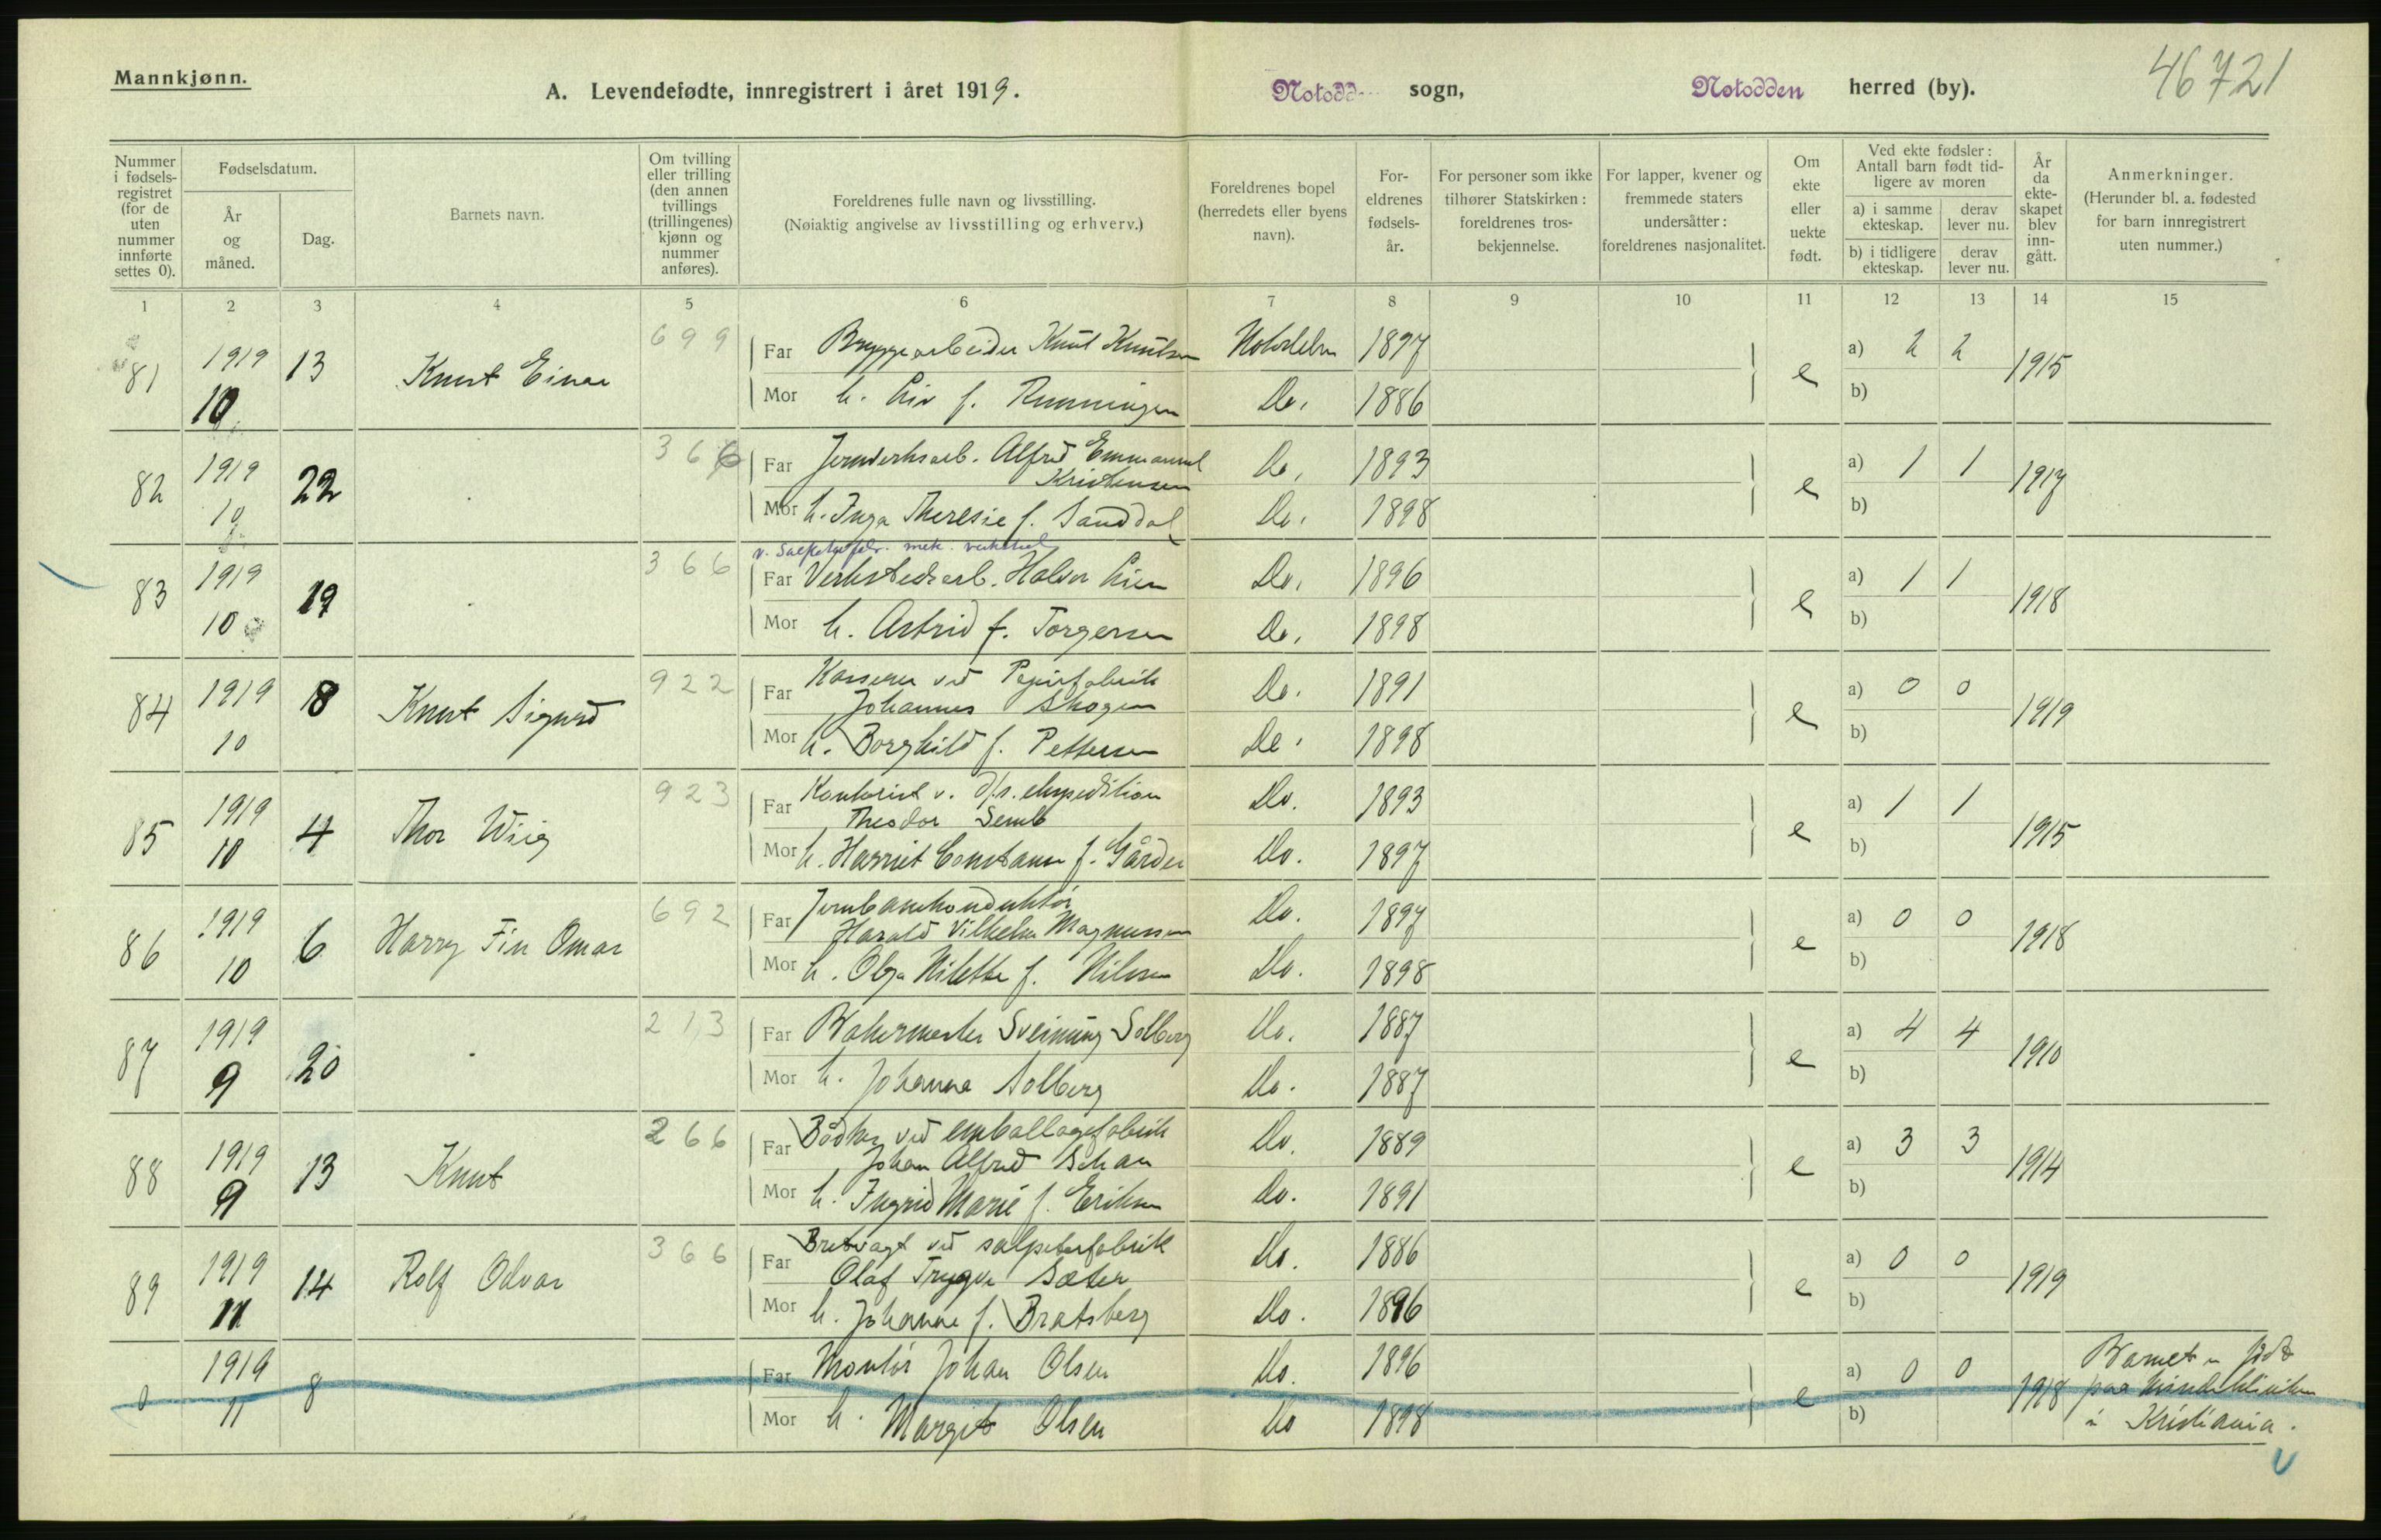 Mannkjønn.
A. Levendefødte, innregistrert i året 1919.
Notodden sogn,
Notodden herred (by).
46721
Nummer i fødselsregistret (for de uten nummer innførte settes 0).
Fødselsdatum.
År og måned.
Dag.
Barnets navn.
Om tvilling eller trilling (den annen tvillings (trillingenes) kjønn og nummer anføres).
Foreldrenes fulle navn og livsstilling.
(Nøiaktig angivelse av livsstilling og erhverv.)
Foreldrenes bopel (herredets eller byens navn).
Foreldrenes fødselsår.
For personer som ikke tilhører Statskirken: foreldrenes trosbekjennelse.
For lapper, kvener og fremmede staters undersåtter: foreldrenes nasjonalitet.
Om ekte eller uekte født.
Ved ekte fødsler: Antall barn født tidligere av moren
a) i samme ekteskap.
derav lever nu.
b) i tidligere ekteskap.
derav lever nu.
År da ekteskapet blev inngått.
Anmerkninger.
(Herunder bl. a. fødested for barn innregistrert uten nummer.)
1 2 3 4 5 6 7 8 9 10 11 12 13 14 15
81 1919 10 13 Knut Einar 699
Far Bryggearbeider Knut Knutsen Notodden 1897
Mor h. Liv f. Runningen Do. 1886
e a) 2 2 b) 1915
82 1919 10 22 366
Far Jernverksarb. Alfred Emmanuel Kristensen Do. 1893
Mor h. Inga Theresie f. Sanddal Do. 1898
e a) 1 1 b) 1917
83 1919 10 19 366
v. Salpeterfabr. mek. verksted
Far Verkstedsarb. Halvor Lien Do. 1896
Mor h. Astrid f. Torgersen Do. 1898
e a) 1 1 b) 1918
84 1919 10 18 Knut Sigurd 922
Far Kasserer ved Papirfabrik Johannes Skogen Do. 1891
Mor h. Borghild f. Pettersen Do. 1898
e a) 0 0 b) 1919
85 1919 10 4 Thor Wiig 923
Far Kontorist v. d/s. ekspedition Theodor Semb Do. 1893
Mor h. Harriet Constanse f. Gårder Do. 1897
e a) 1 1 b) 1915
86 1919 10 6 Harry Fin Omar 692
Far Jernbanekonduktør Harald Vilhelm Magnussen Do. 1897
Mor h. Olga Nilette f. Nilsen Do. 1898
e a) 0 0 b) 1918
87 1919 9 20 213
Far Bakermester Sveinung Solberg Do. 1887
Mor h. Johanna Solberg Do. 1887
e a) 4 4 b) 1910
88 1919 9 13 Knut 266
Far Bødker ved emballagefabrik Johan Alfred Do. 1889
Mor h. Ingrid Marie f. Eriksen Do. 1891
e a) 3 3 b) 1914
89 1919 11 14 Rolf Odvar 366
Far ved salpeterfabrik Olaf Trygve Sæter Do. 1886
Mor h. Johanne f. Bratsberg Do. 1896
e a) 0 0 b) 1919
0 1919 11 8
Far Montør Johan Olsen Do. 1896
Mor h. Margit Olsen Do 1898
e a) 0 0 b) 1918
Barnet er født
paa Kvindeklinikken
i Kristiania.